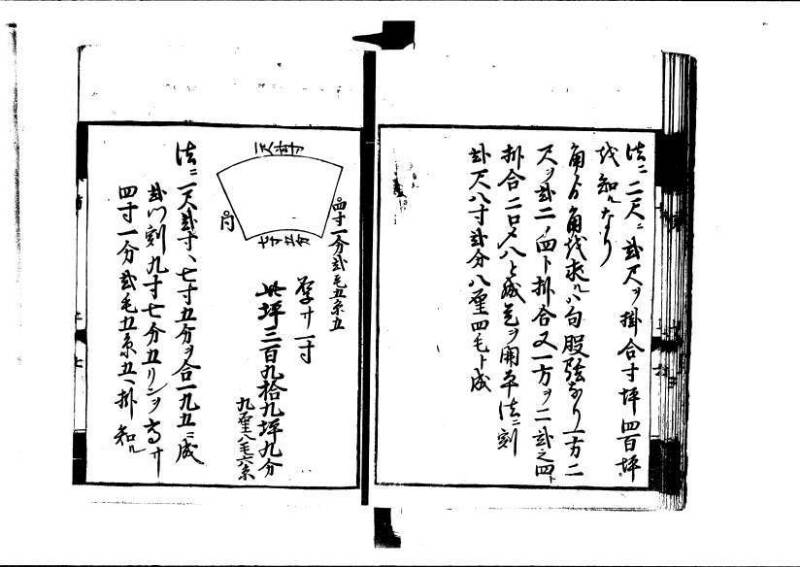 法ニ二尺ニ弐尺ヲ掛合寸坪四百坪
成知ルなり
角ゟ角成求ルハ勾股弦なり一方二
尺ヲ弐二ノ四ト掛合又一方ヲ二弐之四ト
掛合二口〆八ト成是ヲ開平法ニ刻
弐尺八寸弐分八厘四毛ト成
四寸一分弐毛五糸五
厚サ一寸
此坪三百九拾九坪九分
九厘八毛六糸
法ニ一尺弐寸、七寸五分ヲ合一九五ニ成
弐ツ刻九寸七分五リンヲ高サ
四寸一分弐毛五糸五、掛知ル